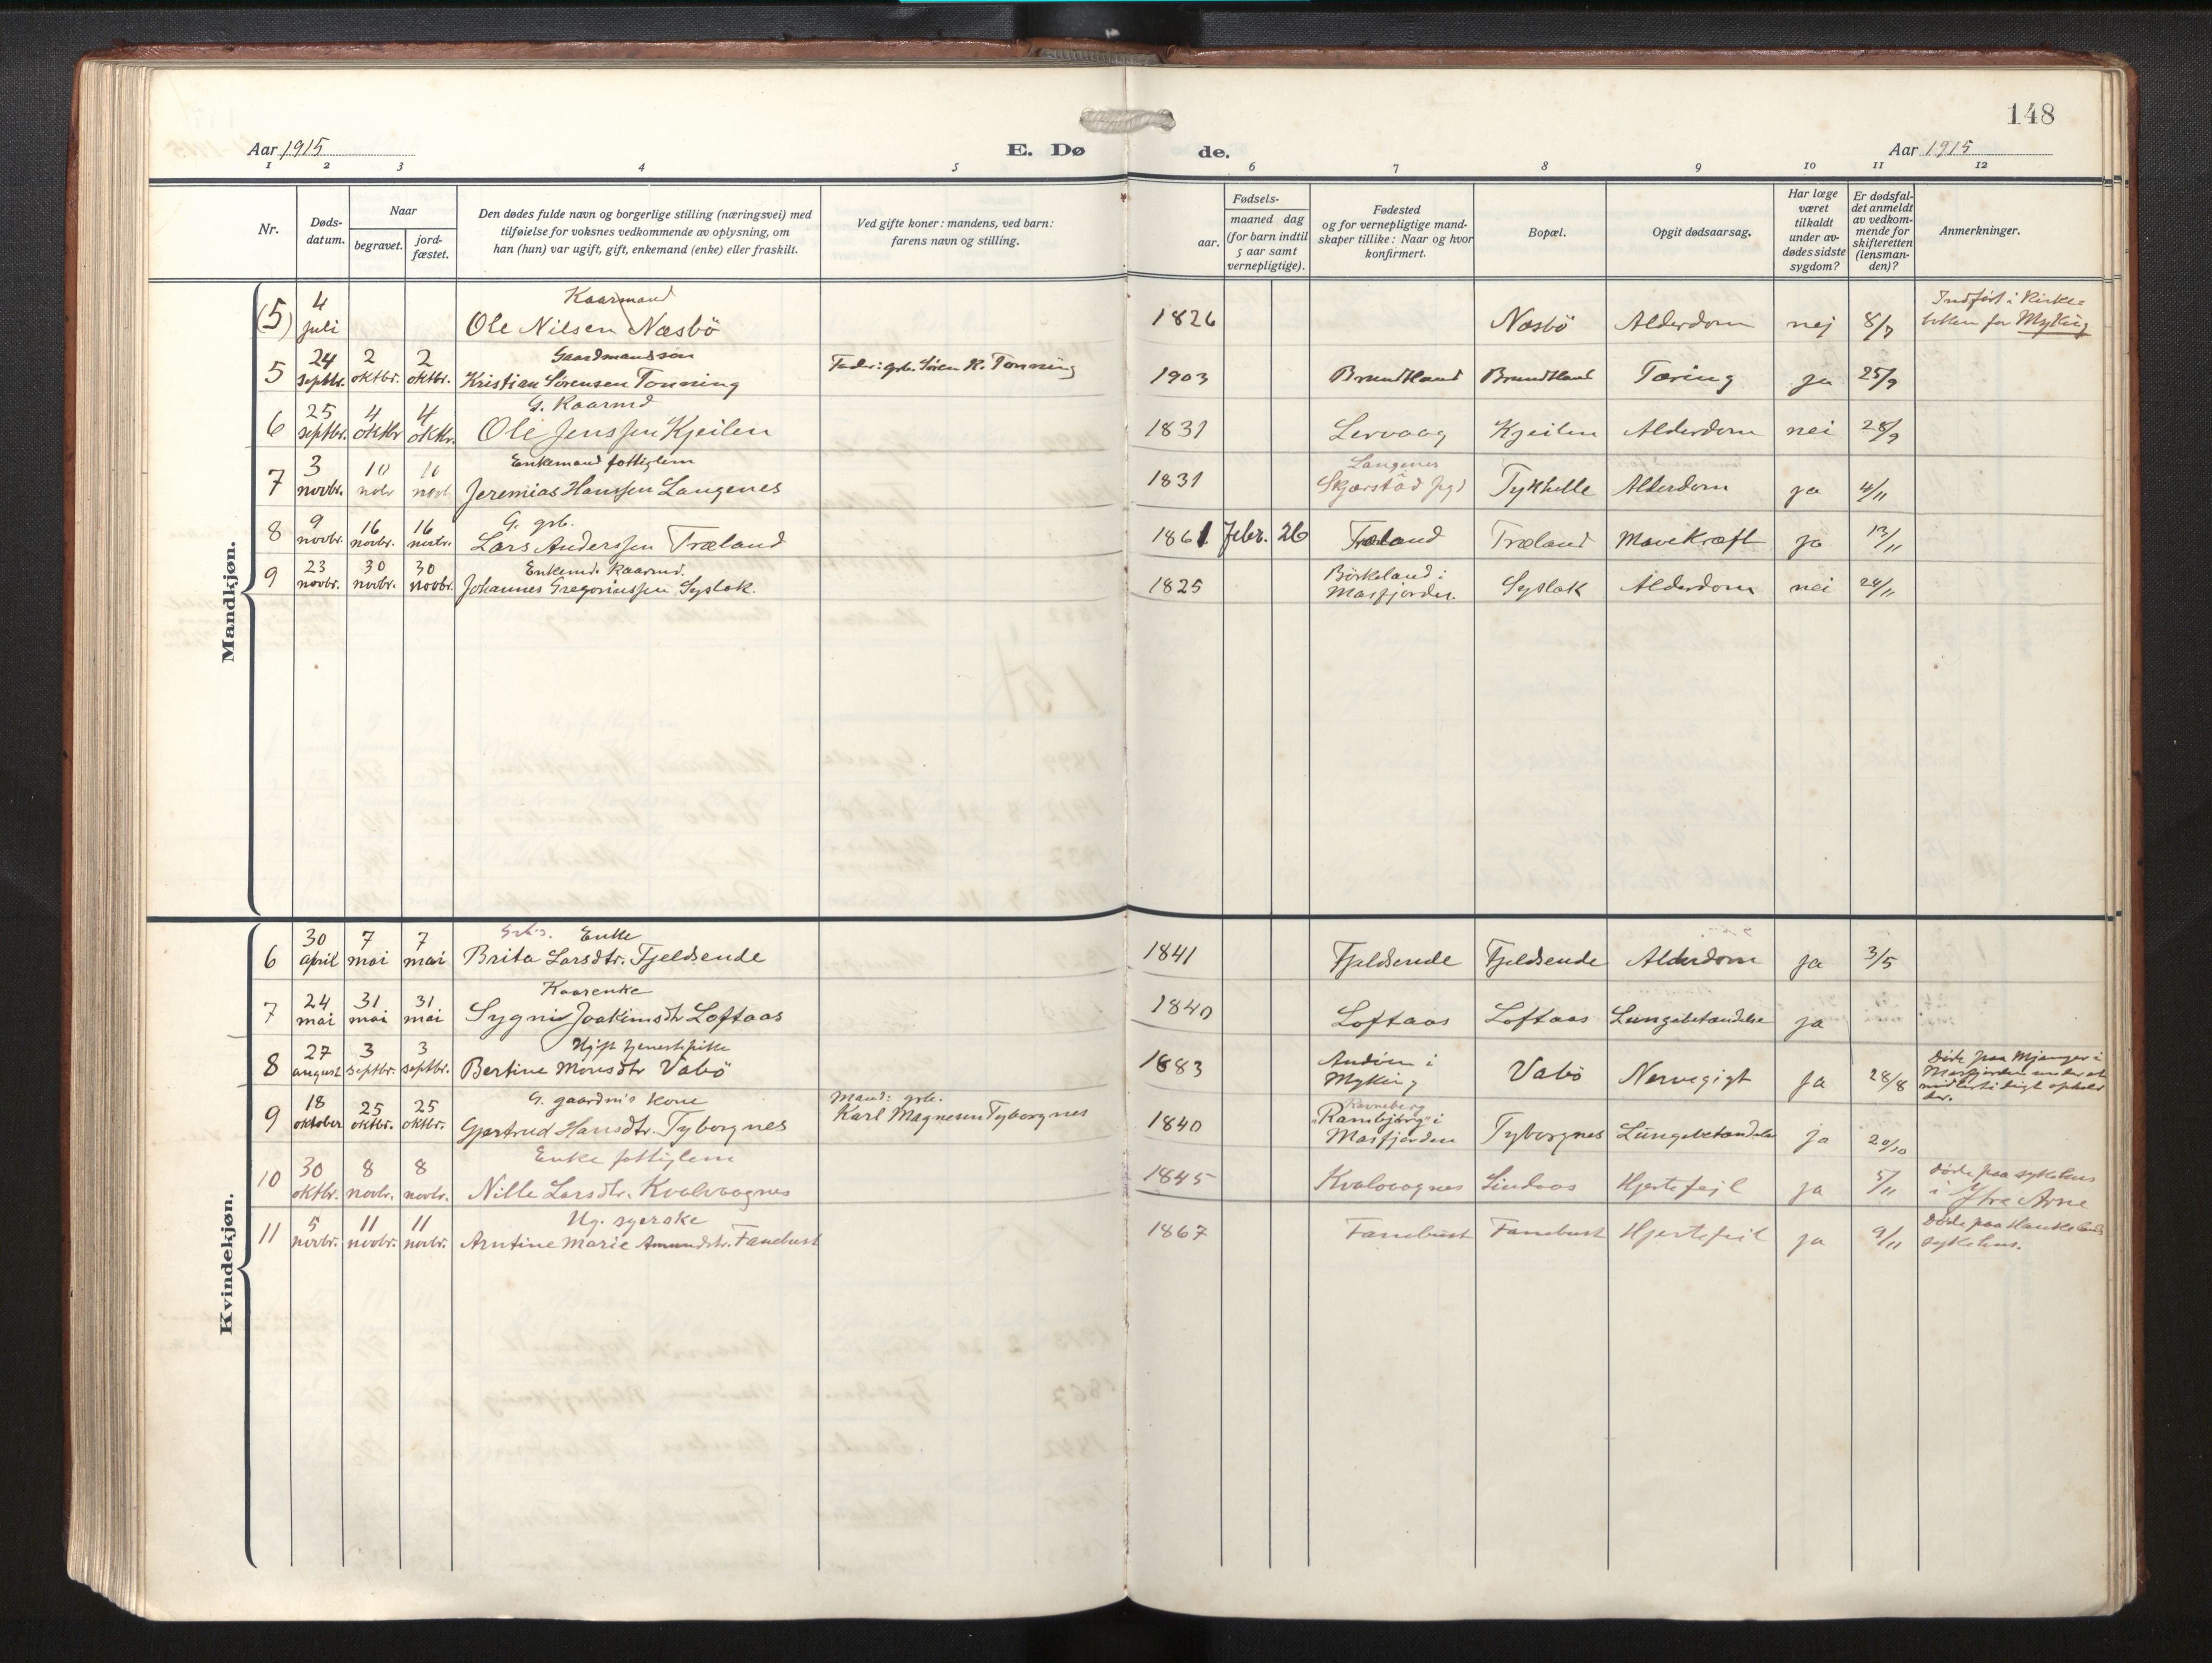 148
Aar 1915
E. Dø
de.
Aar 1915
1 2 3 4 5 6 7 8 9 10 11 12
Nr.
Døds-
datum.
Naar
begravet.
jord-
fæstet.
Den dødes fulde navn og borgerlige stilling (næringsvei) med
tilføielse for voksnes vedkommende av oplysning, om
han (hun) var ugift, gift, enkemand (enke) eller fraskilt.
Ved gifte koner: mandens, ved barn:
farens navn og stilling.
Fødsels-
aar.
maaned dag
(for barn indtil
5 aar samt
vernepligtige).
Fødested
og for vernepligtige mand-
skaper tillike: Naar og hvor
konfirmert.
Bopæl.
Opgit dødsaarsag.
Har læge
været
tilkaldt
under av-
dødes sidste
sygdom?
Er dødsfal-
det anmeldt
av vedkom-
mende for
skifteretten
(lensman-
den)?
Anmerkninger.
Mandkjøn.
4 Kaarmand Indført i Kirke-
(5) juli Ole Nilsen Næsbö 1826 Næsbö Alderdom nej 8/7 boken for Myking
24 2 2 Gaardmandssøn
5 septbr. oktbr. oktbr. Kristian Sørensen Tonning Fader: grb. Søren R. Tonning 1903 Brundtland Brundtland Tæring ja 25/9
25 4 4 G. Kaarmd
6 septbr. oktbr oktbr. Ole Jenssen Kjeilen 1831 Lervaag Kjeilen Alderdom nei 28/9
3 10 10 Enkemand fattiglem Langenes
7 novbr. nobr novb Jeremias Hanssen Langenes 1831 Skjærstad Tykhelle Alderdom ja 4/11
9 16 16 G. grb.
8 novbr. novbr. novbr. Lars Anderssen Træland 1861 Febr. 26 Træland Træland Mavekræft ja 13/11
23 30 30 Enkemd. Kaarmd. Börkeland i
9 novbr. novbr. novbr. Johannes Gregoriussen Syslak. 1825 Masfjorden. Syslak Alderdom nei 24/11
Kvindekjøn.
30 7 7 Grb's. Enke
6 april mai mai Brita Larsdtr. Fjeldsende 1841 Fjeldsende Fjeldsende Alderdom ja 3/5
24 31 31 Kaarenke
7 mai mai mai Sygni Joakimsdtr Loftaas 1840 Loftaas Loftaas Lungebetændelse ja
27 3 3 Ugift tjenestepike Andöen i Döde paa Mjanger i
8 august septbr. septbr. Bertine Monsdtr Vabö 1883 Myking Vabö Nervegigt ja 28/8 Masfjorden under et
midlertidigt ophold
der.
18 25 25 G. gaardm's kone Mand: grb. Ravneberg
9 oktober oktbr. oktbr. Gjertrud Hansdtr. Tyborgnes Karl Magnesen Tyborgnes 1840 "Rambjörg" i
Masfjorden Tyborgnes Lungebetændelse ja 20/10
30 8 8 Enke fattiglem döde paa sykehus
10 oktbr. novbr. novbr. Nille Larsdtr. Kvalvaagnes 1845 Kvalvaagnes Lindaas Hjertefejl ja 5/11 i Ytre Arne
5 11 11 Ug. syerske Døde paa Haukelands
11 novbr. novbr. novbr. Arntine Marie Amundstr. Fanebust 1867 Fanebust Fanebust Hjertefeil ja 9/11 sykehus.